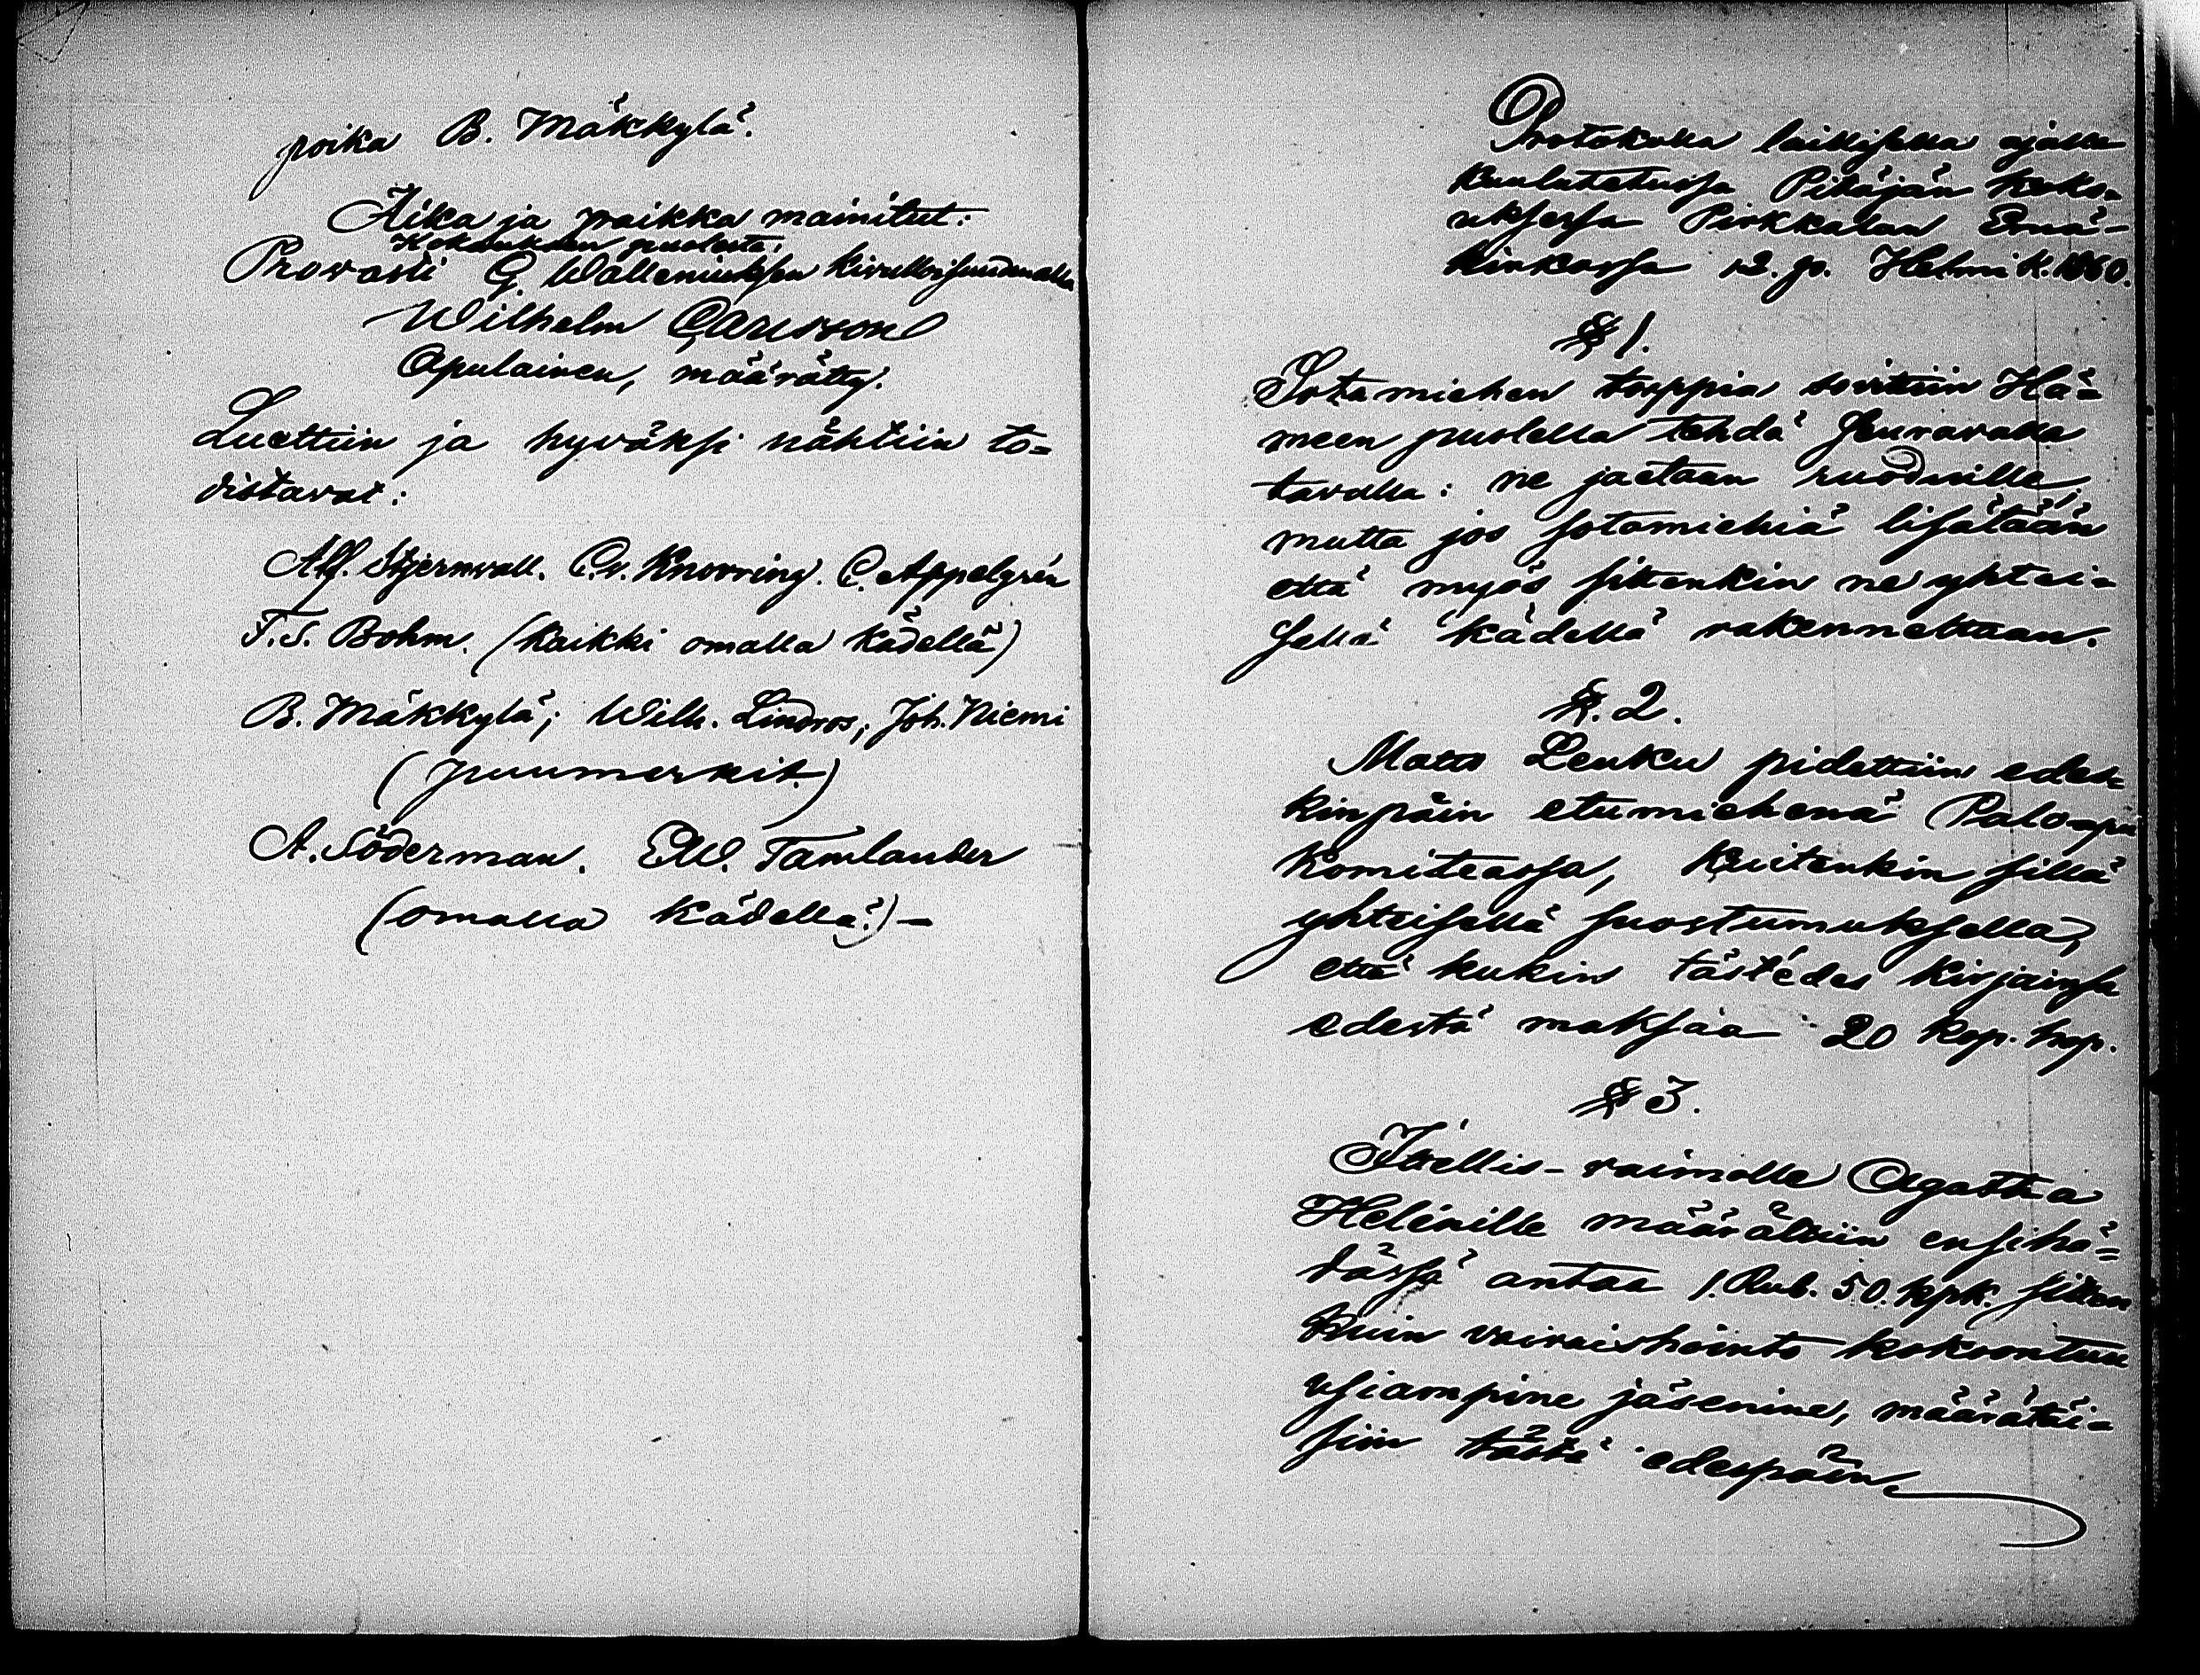 poika B. Mäkkylä.
Aika ja paikka mainitut:
Kokouksen puolesta:
Provasti G. Walleniuksen kivulloisuudenalla
Wilhelm Carlsson
Apulainen, määrätty.
Luettiin ja hyväksi nähtiin to=
distavat:
Alf. Stjernvall. C. v. Knorring. C. Appelgrén
F. S. Bohm. (kaikki omalla kädellä)
B. Mäkkylä; Wilh. Lindros; Joh. Niemi
(puumerkit.)
A. Söderman. E.W. Tamlander
(omalla kädellä.)—
Protokolla laillisella ajalla
kuulutetussa Pitäjän koko=
uksessa Pirkkalan Emä-
kirkossa 12. p. Helmik. 1860.
§ 1.
Sotamiehen torppia sovittiin Hä=
meen puolella tehdä seuravalla
tavalla: ne jaetaan ruoduille,
mutta jos sotamiehiä lisätään
että myös sittenkin ne yhtei=
sellä kädellä rakennetaan.
§. 2.
Matts Leuku pidettiin edes=
kinpäin etumiehenä Paloapu
komiteassa, kuitenkin sillä
yhteisellä suostumuksella,
että kukin täst'edes kirjainsa
edestä maksaa 20 kop. hop.
§ 3.
Itsellis-vaimolle Agatha
Helénille määrättiin ensihä=
dässä antaa 1. Rub. 50. kpk. sitten
kuin vaivaishointo kokoontuu
usiampine jäsenine, määrättäi=
siin tästä edespäin